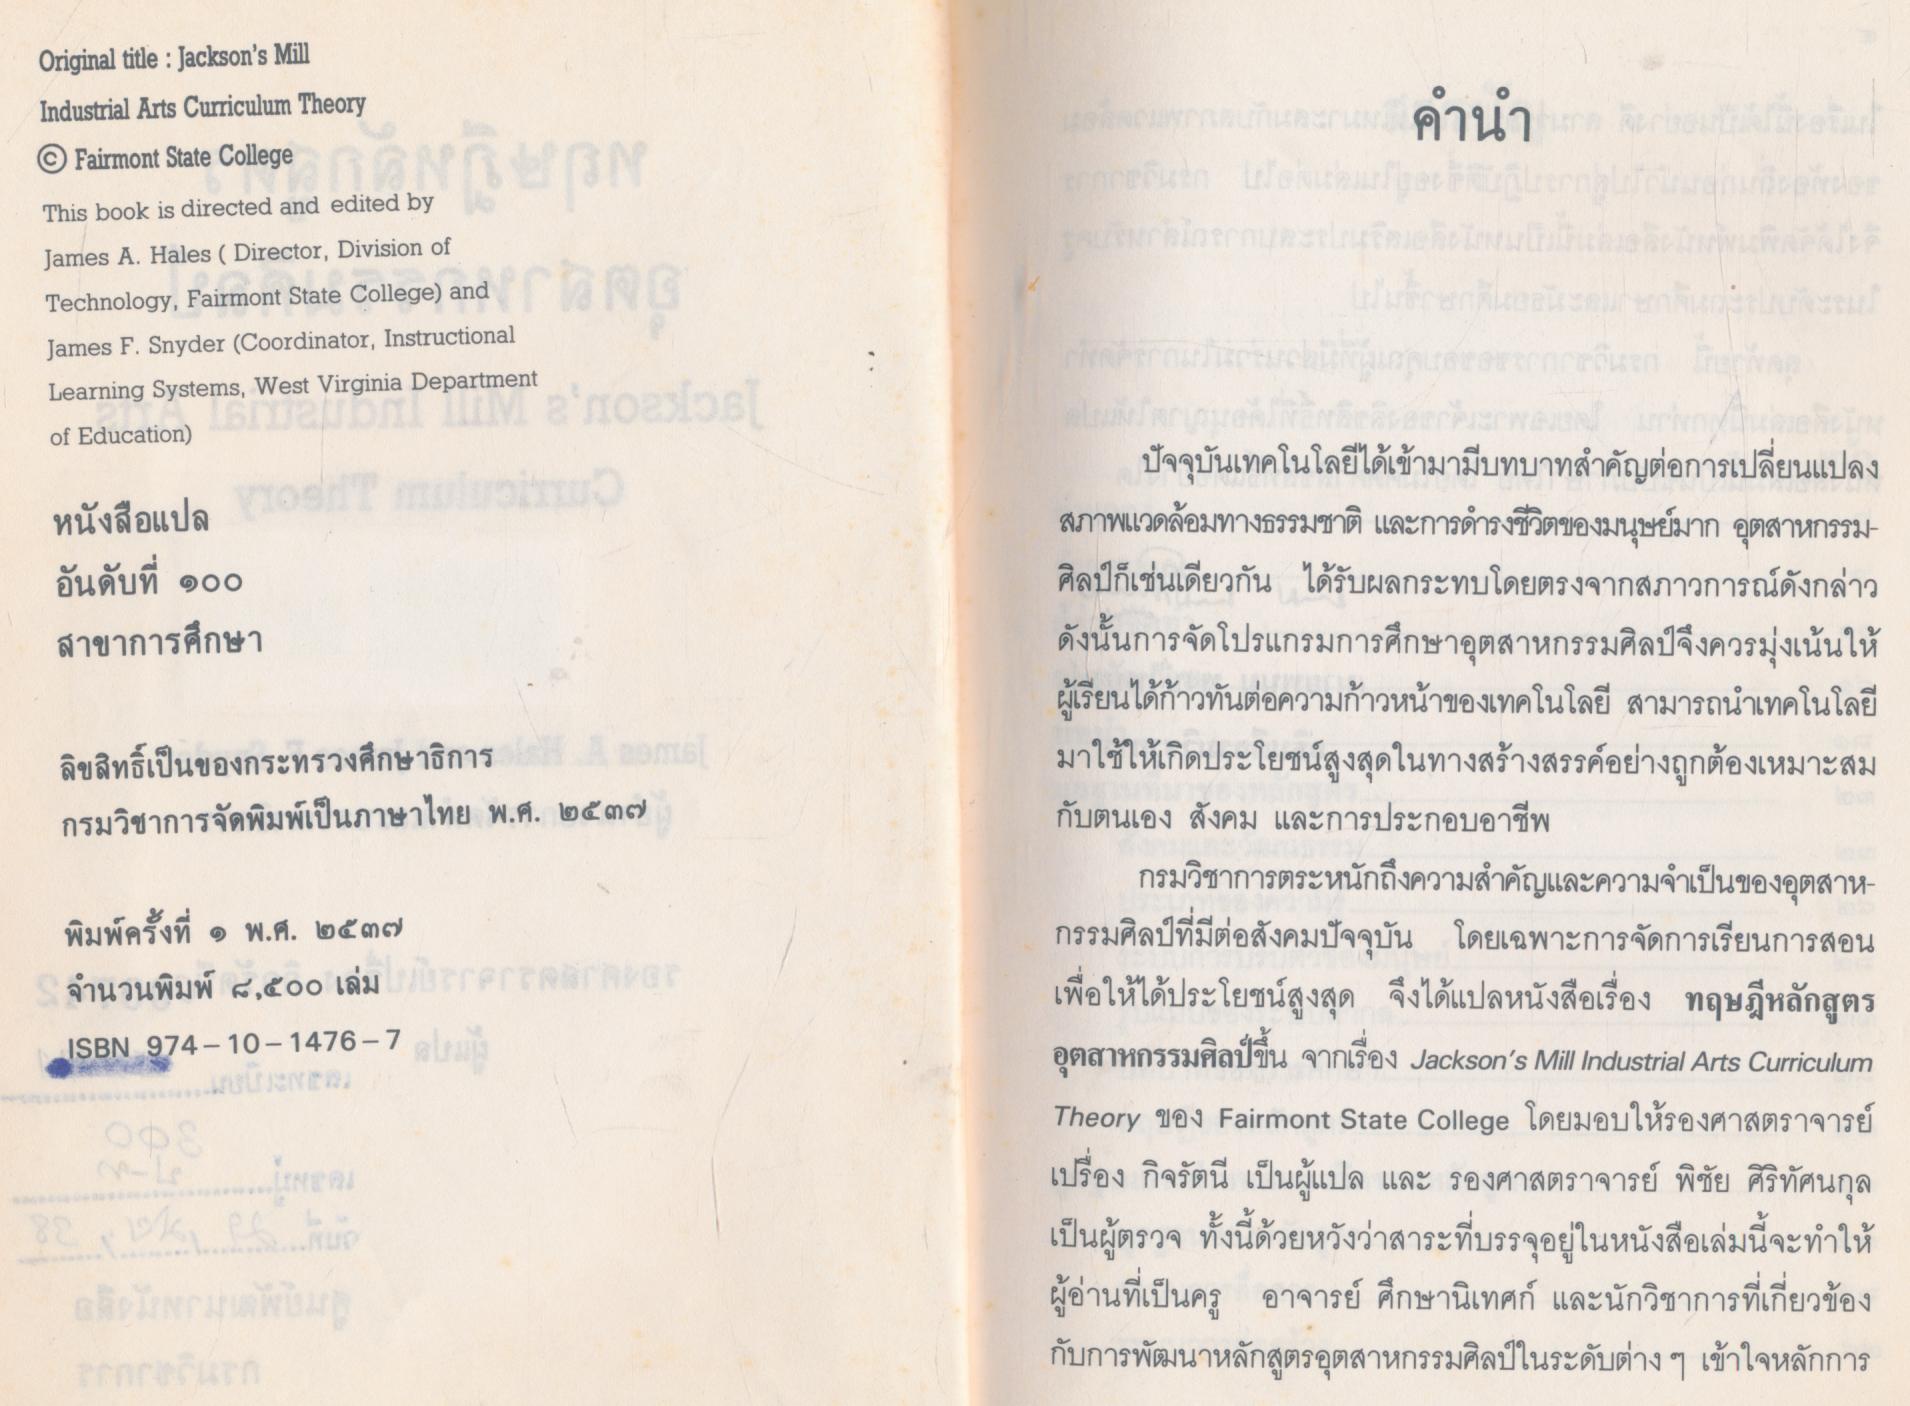 Original title : Jackson's Mill
Industrial Arts Curriculum Theory
© Fairmont State College
This book is directed and edited by
James A. Hales ( Director, Division of
Technology, Fairmont State College) and
James F. Snyder (Coordinator, Instructional
Learning Systems, West Virginia Department
of Education)
หนังสือแปล
อันดับที่ ๑๐๐
สาขาการศึกษา
ลิขสิทธิ์เป็นของกระทรวงศึกษาธิการ
กรมวิชาการจัดพิมพ์เป็นภาษาไทย พ.ศ. ๒๕๓๗
พิมพ์ครั้งที่ ๑ พ.ศ. ๒๕๓๗
จำนวนพิมพ์ ๘,๕๐๐ เล่ม
ISBN 974-10-1476-7
คำนำ
ปัจจุบันเทคโนโลยีได้เข้ามามีบทบาทสำคัญต่อการเปลี่ยนแปลง
สภาพแวดล้อมทางธรรมชาติ และการดำรงชีวิตของมนุษย์มาก อุตสาหกรรม-
ศิลป์ก็เช่นเดียวกัน ได้รับผลกระทบโดยตรงจากสภาวการณ์ดังกล่าว
ดังนั้นการจัดโปรแกรมการศึกษาอุตสาหกรรมศิลป์จึงควรมุ่งเน้นให้
ผู้เรียนได้ก้าวทันต่อความก้าวหน้าของเทคโนโลยี สามารถนำเทคโนโลยี
มาใช้ให้เกิดประโยชน์สูงสุดในทางสร้างสรรค์อย่างถูกต้องเหมาะสม
กับตนเอง สังคม และการประกอบอาชีพ
กรมวิชาการตระหนักถึงความสำคัญและความจำเป็นของอุตสาห-
กรรมศิลป์ที่มีต่อสังคมปัจจุบัน โดยเฉพาะการจัดการเรียนการสอน
เพื่อให้ได้ประโยชน์สูงสุด จึงได้แปลหนังสือเรื่อง ทฤษฎีหลักสูตร
อุตสาหกรรมศิลป์ขึ้น จากเรื่อง Jackson's Mill Industrial Arts Curriculum
Theory ของ Fairmont State College โดยมอบให้รองศาสตราจารย์
เปรื่อง กิจรัตนี เป็นผู้แปล และ รองศาสตราจารย์ พิชัย ศิริทัศนกุล
เป็นผู้ตรวจ ทั้งนี้ด้วยหวังว่าสาระที่บรรจุอยู่ในหนังสือเล่มนี้จะทำให้
ผู้อ่านที่เป็นครู อาจารย์ ศึกษานิเทศก์ และนักวิชาการที่เกี่ยวข้อง
กับการพัฒนาหลักสูตรอุตสาหกรรมศิลป์ในระดับต่าง ๆ เข้าใจหลักการ